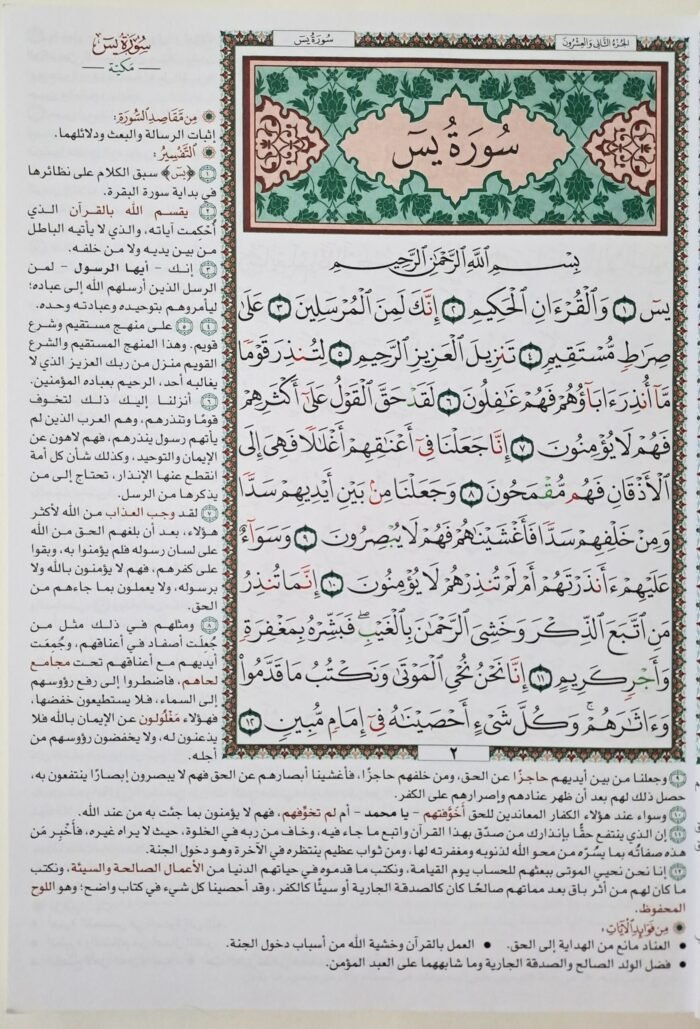 الجزء الثاني والعشرون
سورة يس
سُورَةُ يسٓ
بِسْمِ ٱللَّهِ ٱلرَّحْمَٰنِ ٱلرَّحِيمِ
يسٓ ١ وَٱلْقُرْءَانِ ٱلْحَكِيمِ ٢ إِنَّكَ لَمِنَ ٱلْمُرْسَلِينَ ٣ عَلَىٰ
صِرَٰطٍ مُّسْتَقِيمٍ ٤ تَنزِيلَ ٱلْعَزِيزِ ٱلرَّحِيمِ ٥ لِتُنذِرَ قَوْمًا
مَّآ أُنذِرَ ءَابَآؤُهُمْ فَهُمْ غَٰفِلُونَ ٦ لَقَدْ حَقَّ ٱلْقَوْلُ عَلَىٰٓ أَكْثَرِهِمْ
فَهُمْ لَا يُؤْمِنُونَ ٧ إِنَّا جَعَلْنَا فِىٓ أَعْنَٰقِهِمْ أَغْلَٰلًا فَهِىَ إِلَى
ٱلْأَذْقَانِ فَهُم مُّقْمَحُونَ ٨ وَجَعَلْنَا مِنۢ بَيْنِ أَيْدِيهِمْ سَدًّا
وَمِنْ خَلْفِهِمْ سَدًّا فَأَغْشَيْنَٰهُمْ فَهُمْ لَا يُبْصِرُونَ ٩ وَسَوَآءٌ
عَلَيْهِمْ ءَأَنذَرْتَهُمْ أَمْ لَمْ تُنذِرْهُمْ لَا يُؤْمِنُونَ ١٠ إِنَّمَا تُنذِرُ
مَنِ ٱتَّبَعَ ٱلذِّكْرَ وَخَشِىَ ٱلرَّحْمَٰنَ بِٱلْغَيْبِ ۖ فَبَشِّرْهُ بِمَغْفِرَةٍ
وَأَجْرٍ كَرِيمٍ ١١ إِنَّا نَحْنُ نُحْىِ ٱلْمَوْتَىٰ وَنَكْتُبُ مَا قَدَّمُوا۟
وَءَاثَٰرَهُمْ ۚ وَكُلَّ شَىْءٍ أَحْصَيْنَٰهُ فِىٓ إِمَامٍ مُّبِينٍ ١٢
٢
سُورَةُ يسٓ
مَكيّة
مِن مَّقَاصِدِ السُّورَةِ:
إثبات الرسالة والبعث ودلائلهما.
التَّفْسِيرُ:
١ ﴿يسٓ﴾ سبق الكلام على نظائرها
في بداية سورة البقرة.
٢ يقسم الله بالقرآن الذي
أُحكمت آياته، والذي لا يأتيه الباطل
من بين يديه ولا من خلفه.
٣ إنك - أيها الرسول - لمن
الرسل الذين أرسلهم الله إلى عباده؛
ليأمروهم بتوحيده وعبادته وحده.
٤ ٥ على منهج مستقيم وشرع
قويم. وهذا المنهج المستقيم والشرع
القويم منزل من ربك العزيز الذي لا
يغالبه أحد، الرحيم بعباده المؤمنين.
٦ أنزلنا إليك ذلك لتخوف
قومًا وتنذرهم، وهم العرب الذين لم
يأتهم رسول ينذرهم، فهم لاهون عن
الإيمان والتوحيد، وكذلك شأن كل أمة
انقطع عنها الإنذار، تحتاج إلى من
يذكرها من الرسل.
٧ لقد وجب العذاب من الله لأكثر
هؤلاء، بعد أن بلغهم الحق من الله
على لسان رسوله فلم يؤمنوا به، وبقوا
على كفرهم، فهم لا يؤمنون بالله ولا
برسوله، ولا يعملون بما جاءهم من
الحق.
٨ ومثلهم في ذلك مثل من
جُعِلت أصفاد في أعناقهم، وجُمِعَت
أيديهم مع أعناقهم تحت مجامع
لحاهم، فاضطروا إلى رفع رؤوسهم
إلى السماء، فلا يستطيعون خفضها،
فهؤلاء مَغْلُولون عن الإيمان بالله فلا
يذعنون له، ولا يخفضون رؤوسهم من
أجله.
٩ وجعلنا من بين أيديهم حاجزًا عن الحق، ومن خلفهم حاجزًا، فأغشينا أبصارهم عن الحق فهم لا يبصرون إبصارًا ينتفعون به،
حصل ذلك لهم بعد أن ظهر عنادهم وإصرارهم على الكفر.
١٠ وسواء عند هؤلاء الكفار المعاندين للحق أخَوَّفتهم - يا محمد - أم لم تخوِّفهم، فهم لا يؤمنون بما جئت به من عند الله.
١١ إن الذي ينتفع حقًّا بإنذارك من صدّق بهذا القرآن واتبع ما جاء فيه، وخاف من ربه في الخلوة، حيث لا يراه غيره، فأَخْبِر مَن
هذه صفاتُه بما يسُرّه من محو الله لذنوبه ومغفرته لها، ومن ثواب عظيم ينتظره في الآخرة وهو دخول الجنة.
١٢ إنا نحن نحيي الموتى ببعثهم للحساب يوم القيامة، ونكتب ما قدموه في حياتهم الدنيا من الأعمال الصالحة والسيئة، ونكتب
ما كان لهم من أثر باق بعد مماتهم صالحًا كان كالصدقة الجارية أو سيئًا كالكفر، وقد أحصينا كل شيء في كتاب واضح؛ وهو اللوح
المحفوظ.
مِن فَوَائِدِ الْآيَاتِ:
• العناد مانع من الهداية إلى الحق. • العمل بالقرآن وخشية الله من أسباب دخول الجنة.
• فضل الولد الصالح والصدقة الجارية وما شابههما على العبد المؤمن.